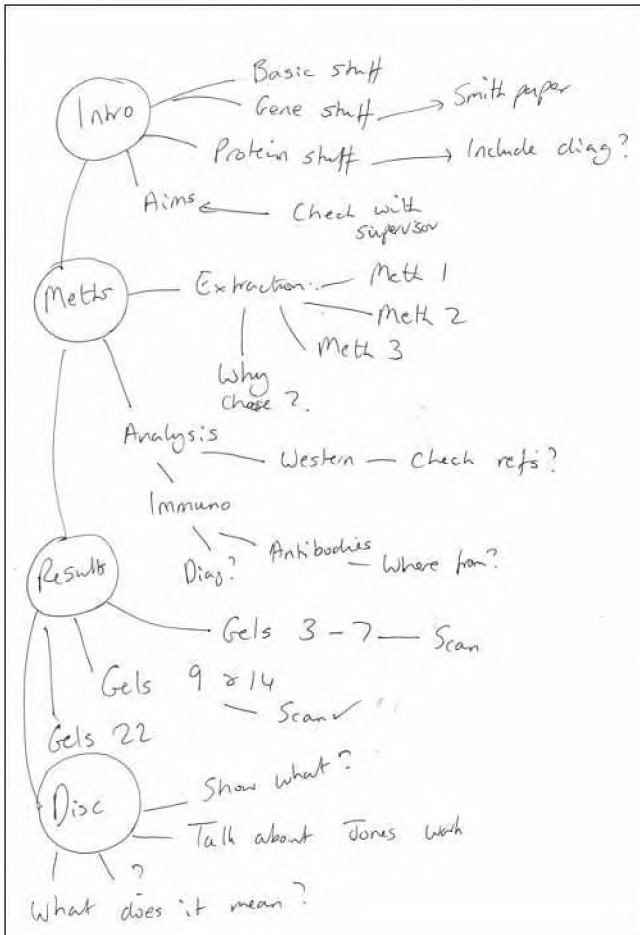 Basic stuff
Intro
Gene stuff
Smith paper
Protein stuff
Include diag?
Aims
Check with
supervisor
Meths
Extraction:
Meth 1
Meth 2
Meth 3
Why
chose?
Analysis
Western
Check refs?
Immuno
Diag?
Antibodies
Where from?
Results
Gels 3 - 7
Scan
Gels 9 & 14
Scan ✓
Gels 22
Disc
Show what?
Talk about Jones work
?
What does it mean?